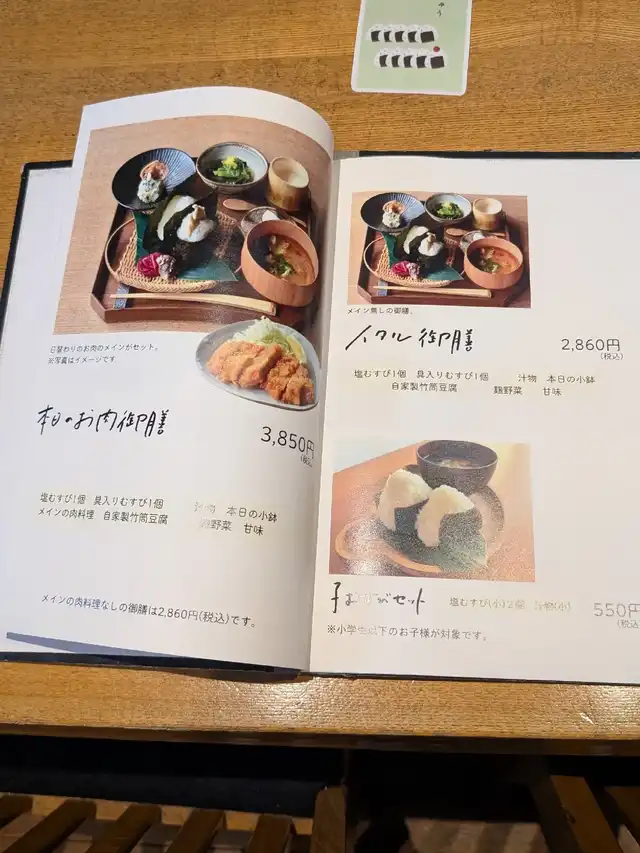 ゅう
日替わりのお肉のメインがセット。
※写真はイメージです
本日のお肉御膳
3,850円
(税込)
塩むすび1個 具入りむすび1個 汁物 本日の小鉢
メインの肉料理 自家製竹筒豆腐 麹野菜 甘味
メインの肉料理なしの御膳は2,860円(税込)です。
メイン無しの御膳。
イタル御膳
2,860円
(税込)
塩むすび1個 具入りむすび1個 汁物 本日の小鉢
自家製竹筒豆腐 麹野菜 甘味
セット
塩むすび(小)2個 汁物(小)
550円
(税込
※小学生以下のお子様が対象です。